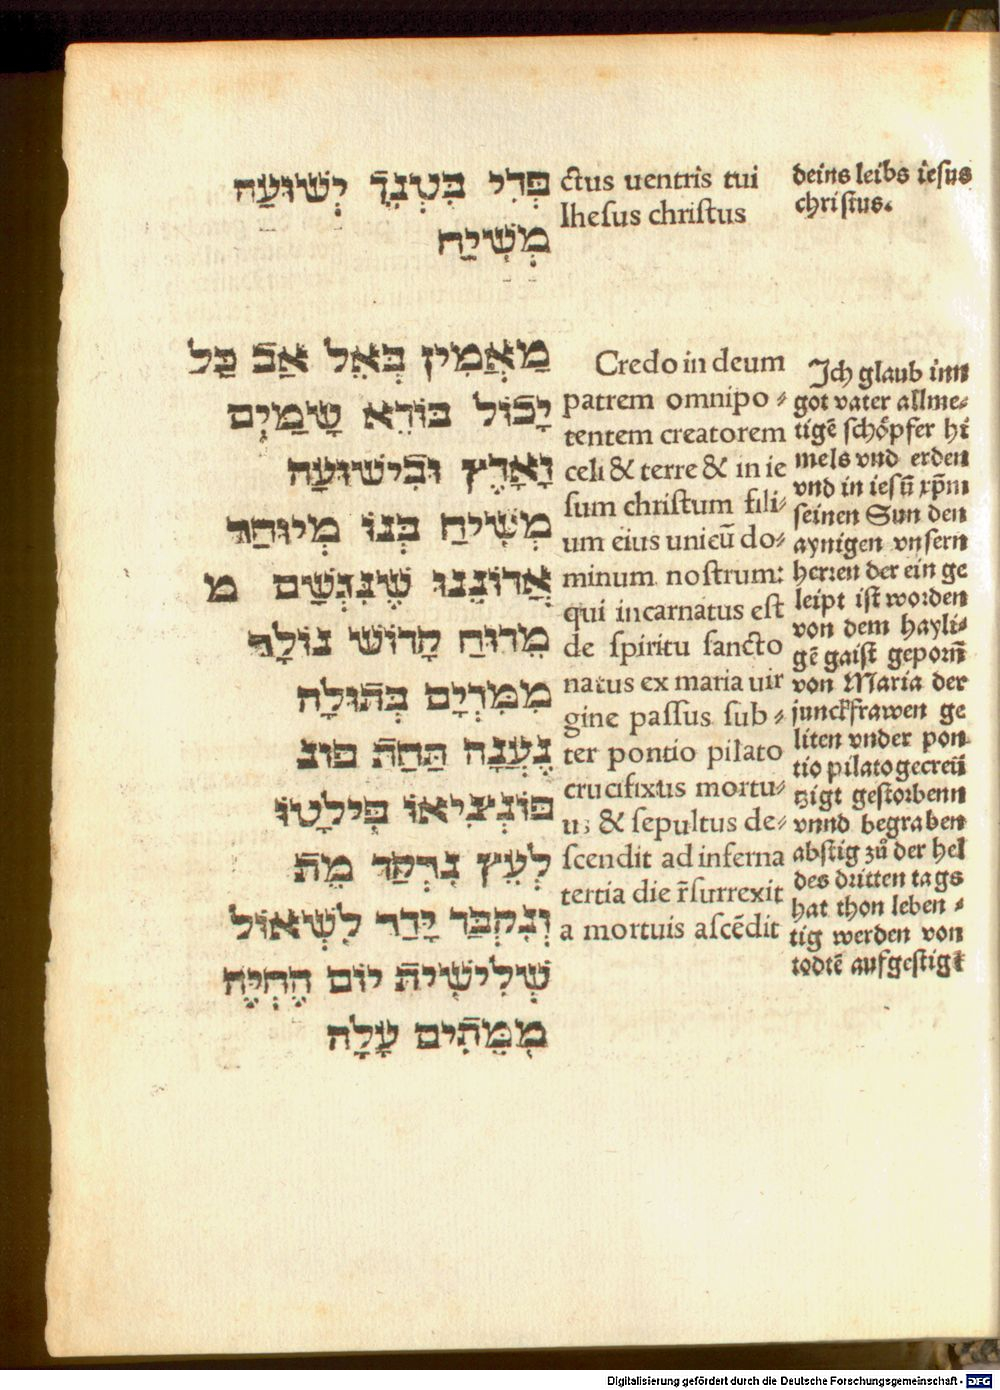 פְּרִי בִּטְנֶךָ יְשׁוּעַה
מְשִׁיַח
מַאֲמִין בְּאֵל אַב כַּל
יָכוֹל בּוֹרֵא שָׁמַיִם
וָאָרֶץ וּבִישׁוּעַה
מְשִׁיחַ בְּנוֹ מְיוּחַד
אֲדוֹנֵנוּ שֶׁנִגְשַׁם מ
מִרוּחַ קָדוֹשׁ נוֹלָד
מִמִרְיָם בְּתוּלָה
נֶעֱנָה תַּחַת פונ
פּוֹנְצִיאוֹ פִּילָטוֹ
לְעֵץ נִדְקַר מֵת
וְנִקְבַּר יָרַד לִשְׁאוֹל
שְׁלִישִׁית יוֹם הֶחְיָה
מִמֵתִים עָלָה
ctus uentris tui
Ihesus christus
Credo in deum
patrem omnipo-
tentem creatorem
celi & terre & in ie
sum christum fili-
um eius unicū do-
minum nostrum:
qui incarnatus est
de spiritu sancto
natus ex maria uir
gine passus sub-
ter pontio pilato
crucifixus mortu-
us & sepultus de-
scendit ad inferna
tertia die r̄surrexit
a mortuis ascēdit
deins leibs iesus
christus.
Ich glaub inn
got vater allme-
tigē schöpfer hī
mels vnd erden
vnd in iesū xp̄m
seinen Sun den
aynigen vnsern
herren der ein ge
leipt ist worden
von dem hayli-
gē gaist geporn̄
von Maria der
junckfrawen ge
liten vnder pon
tio pilato gecreū
tzigt gestorbenn
vnnd begraben
abstig zů der hel
des dritten tags
hat thon leben-
tig werden von
todtē aufgestigē
Digitalisierung gefördert durch die Deutsche Forschungsgemeinschaft - DFG